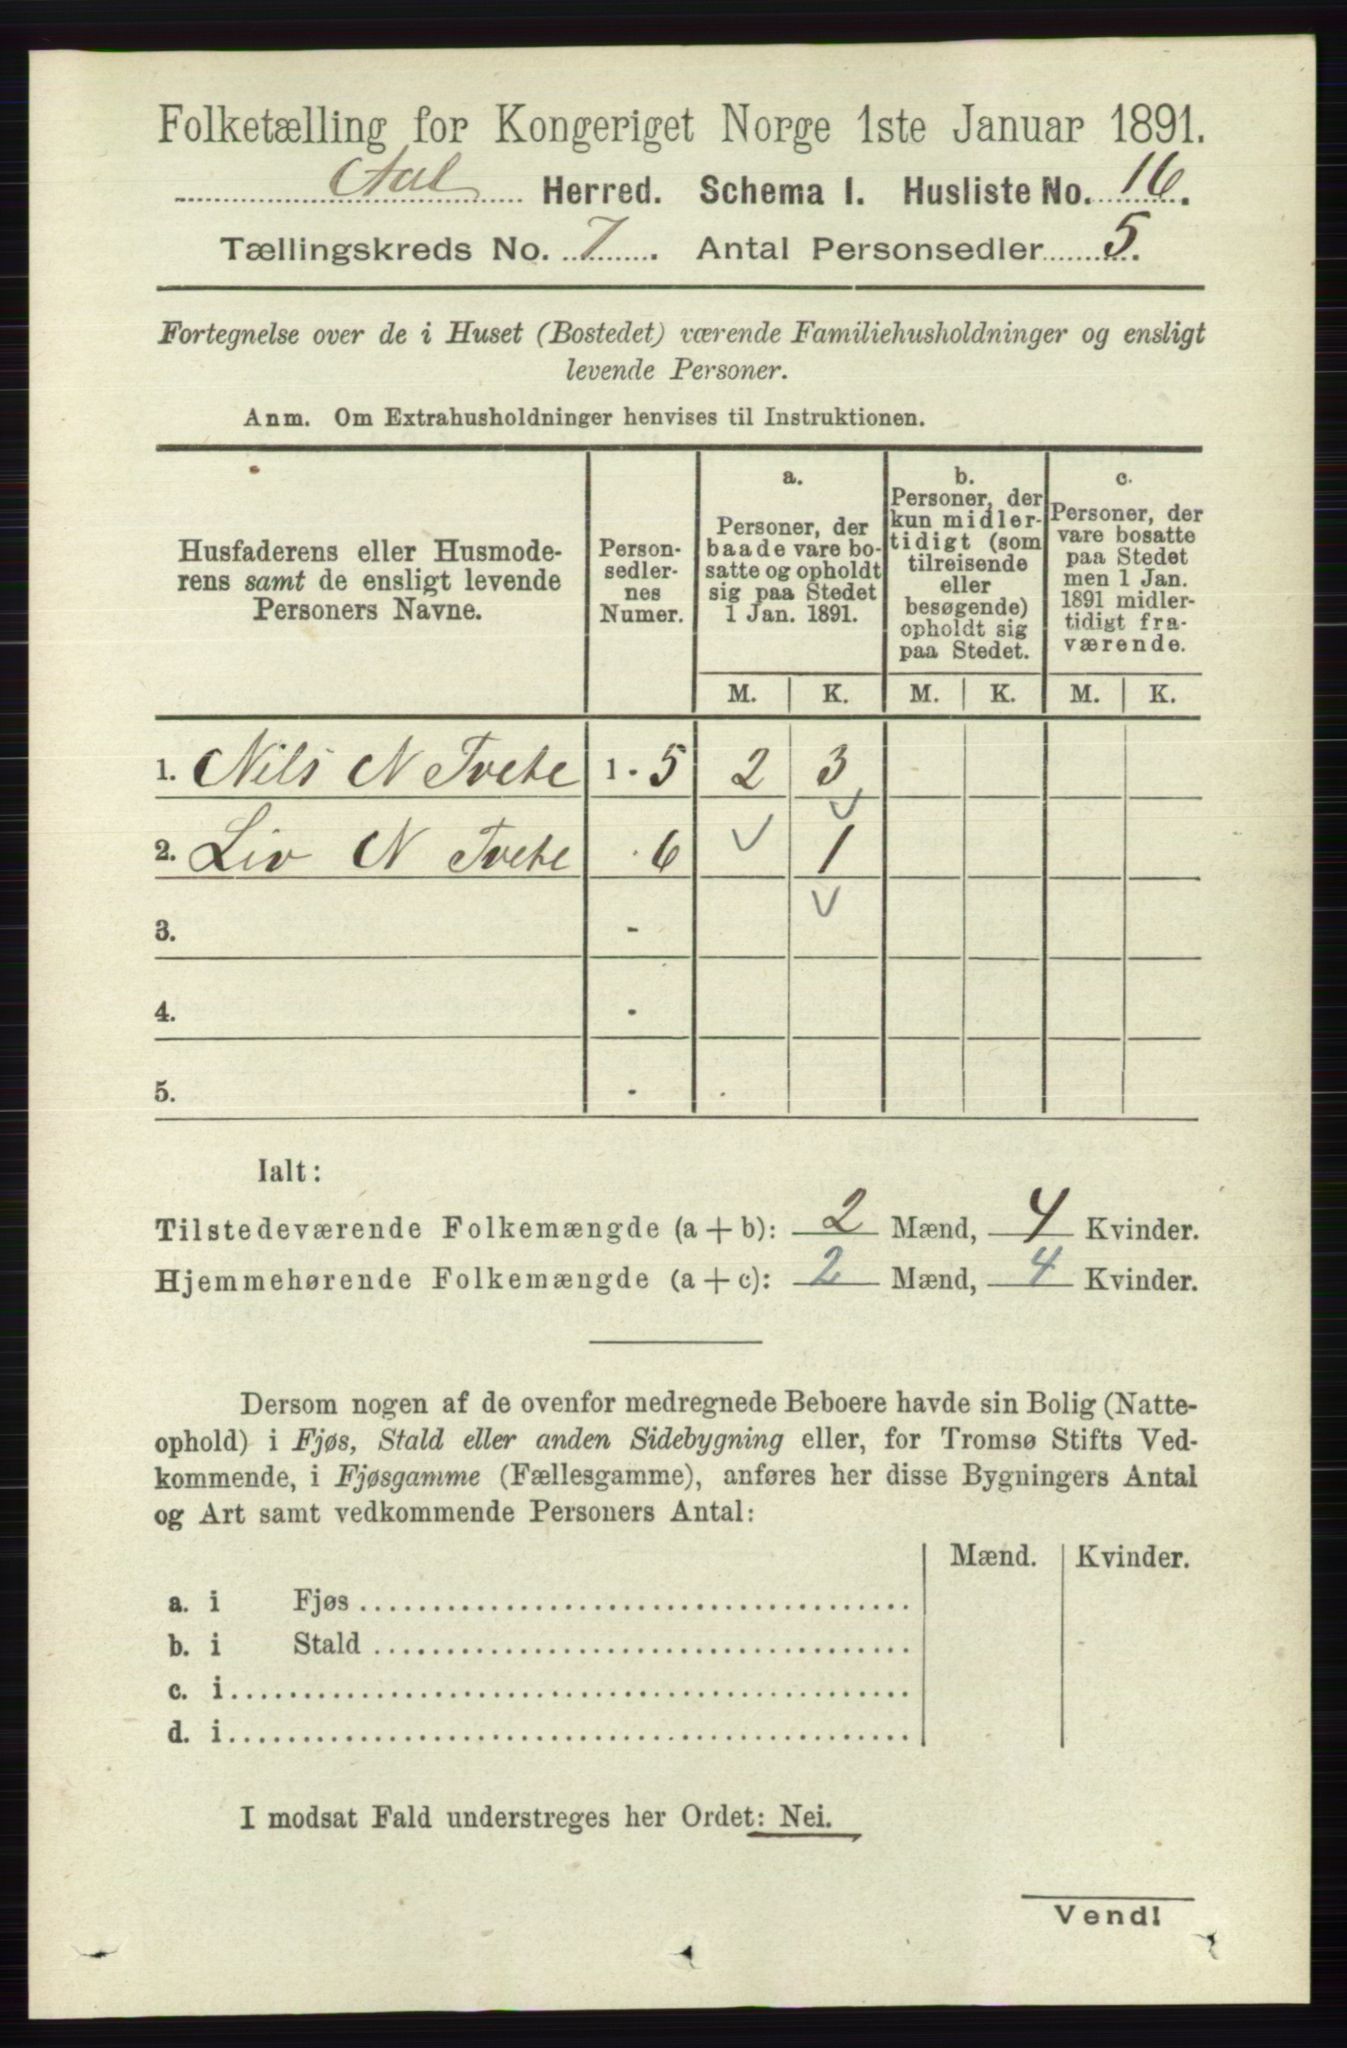 Folketælling for Kongeriget Norge 1ste Januar 1891.
Aal Herred. Schema I. Husliste No. 16.
Tællingskreds No. 7. Antal Personsedler 5.
Fortegnelse over de i Huset (Bostedet) værende Familiehusholdninger og ensligt
levende Personer.
Anm. Om Extrahusholdninger henvises til Instruktionen.
Husfaderens eller Husmode-
rens samt de ensligt levende
Personers Navne.
Person-
sedler-
nes
Numer.
a.
Personer, der
baade vare bo-
satte og opholdt
sig paa Stedet
1 Jan. 1891.
b.
Personer, der
kun midler-
tidigt (som
tilreisende
eller
besøgende)
opholdt sig
paa Stedet.
c.
Personer, der
vare bosatte
paa Stedet
men 1 Jan.
1891 midler-
tidigt fra-
værende.
M. K. M. K. M. K.
1. Nils N Tvete 1 - 5 2 3
2. Liv N Tvete - 6 1
3. -
4. -
5. -
Ialt:
Tilstedeværende Folkemængde (a + b): 2 Mænd, 4 Kvinder.
Hjemmehørende Folkemængde (a + c): 2 Mænd, 4 Kvinder.
Dersom nogen af de ovenfor medregnede Beboere havde sin Bolig (Natte-
ophold) i Fjøs, Stald eller anden Sidebygning eller, for Tromsø Stifts Ved-
kommende, i Fjøsgamme (Fællesgamme), anføres her disse Bygningers Antal
og Art samt vedkommende Personers Antal:
Mænd. Kvinder.
a. i Fjøs
b. i Stald
c. i
d. i
I modsat Fald understreges her Ordet: Nei.
Vend!